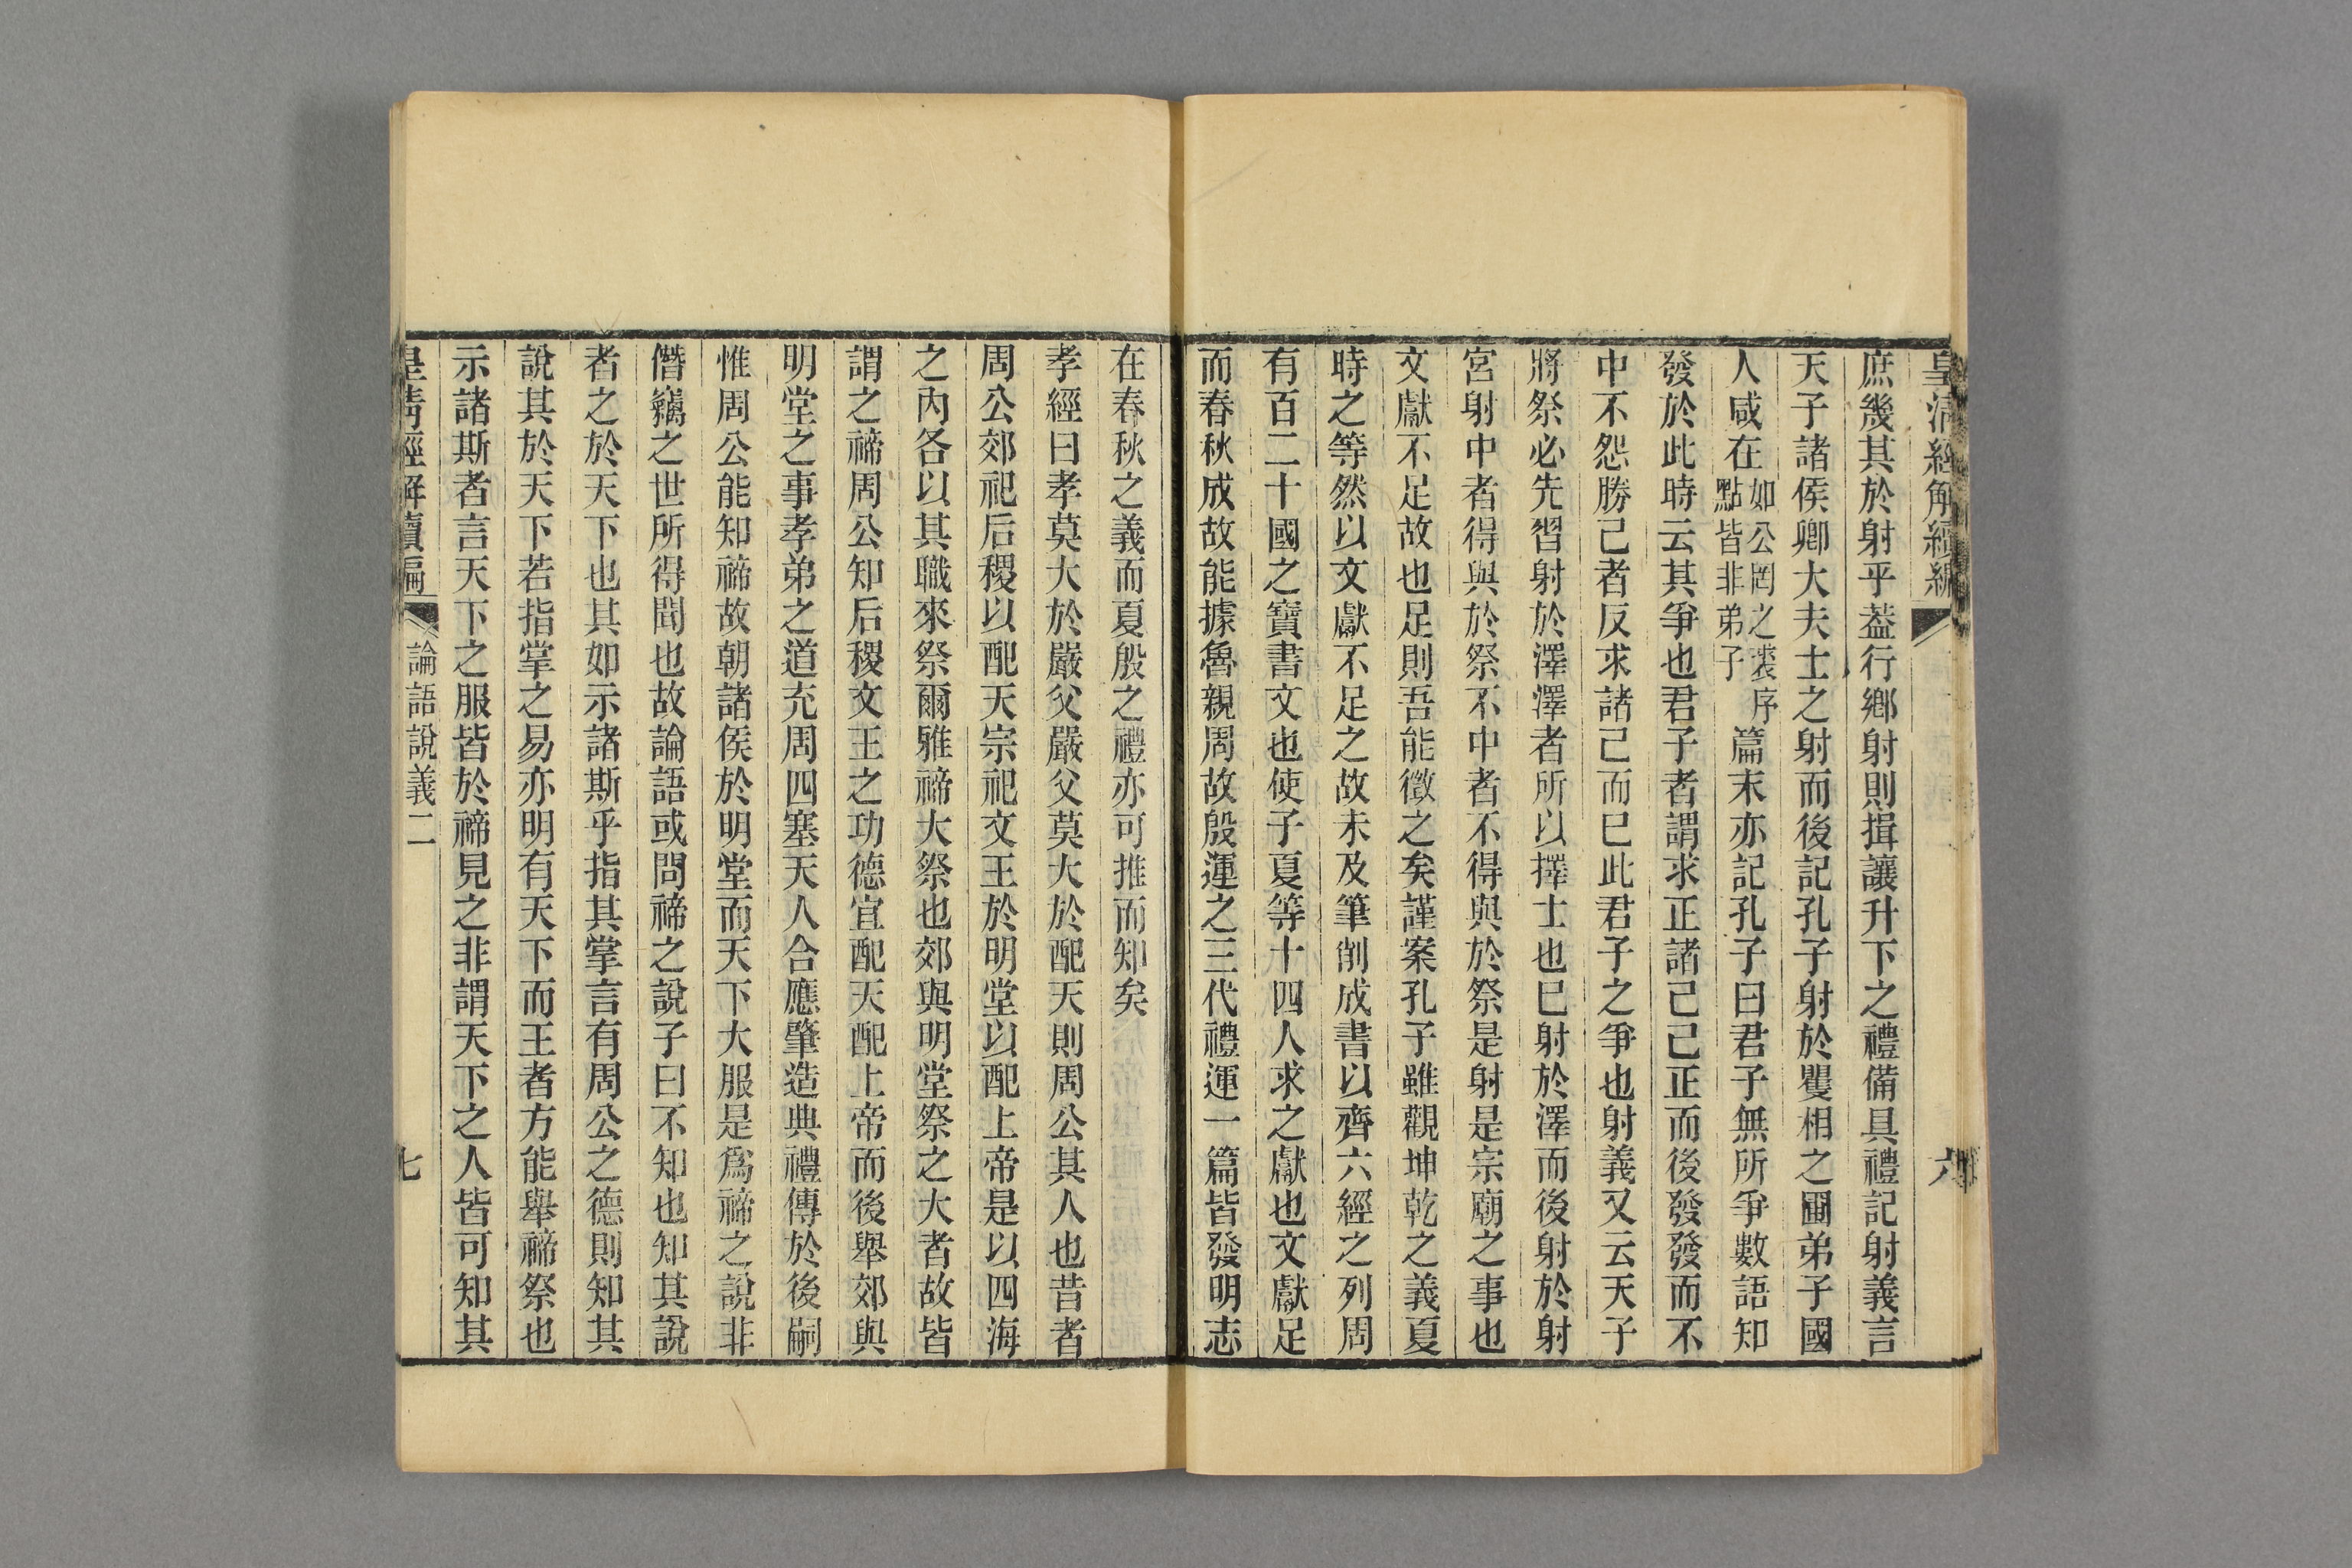 皇清經解續編 六
庶幾其於射乎葢行鄉射則揖讓升下之禮備具禮記射義言
天子諸侯卿大夫士之射而後記孔子射於矍相之圃弟子國
人咸在如公罔之裘序點皆非弟子篇末亦記孔子曰君子無所爭數語知
發於此時云其爭也君子者謂求正諸己己正而後發發而不
中不怨勝己者反求諸己而已此君子之爭也射義又云天子
將祭必先習射於澤澤者所以擇士也已射於澤而後射於射
宮射中者得與於祭不中者不得與於祭是射是宗廟之事也
文獻不足故也足則吾能徵之矣謹案孔子雖觀坤乾之義夏
時之等然以文獻不足之故未及筆削成書以齊六經之列周
有百二十國之寶書文也使子夏等十四人求之獻也文獻足
而春秋成故能據魯親周故殷運之三代禮運一篇皆發明志
在春秋之義而夏殷之禮亦可推而知矣
孝經曰孝莫大於嚴父嚴父莫大於配天則周公其人也昔者
周公郊祀后稷以配天宗祀文王於明堂以配上帝是以四海
之內各以其職來祭爾雅禘大祭也郊與明堂祭之大者故皆
謂之禘周公知后稷文王之功德宜配天配上帝而後舉郊與
明堂之事孝弟之道充周四塞天人合應肇造典禮傳於後嗣
惟周公能知禘故朝諸侯於明堂而天下大服是爲禘之說非
僭竊之世所得聞也故論語或問禘之說子曰不知也知其說
者之於天下也其如示諸斯乎指其掌言有周公之德則知其
說其於天下若指掌之易亦明有天下而王者方能舉禘祭也
示諸斯者言天下之服皆於禘見之非謂天下之人皆可知其
皇清經解續編 論語說義二 七